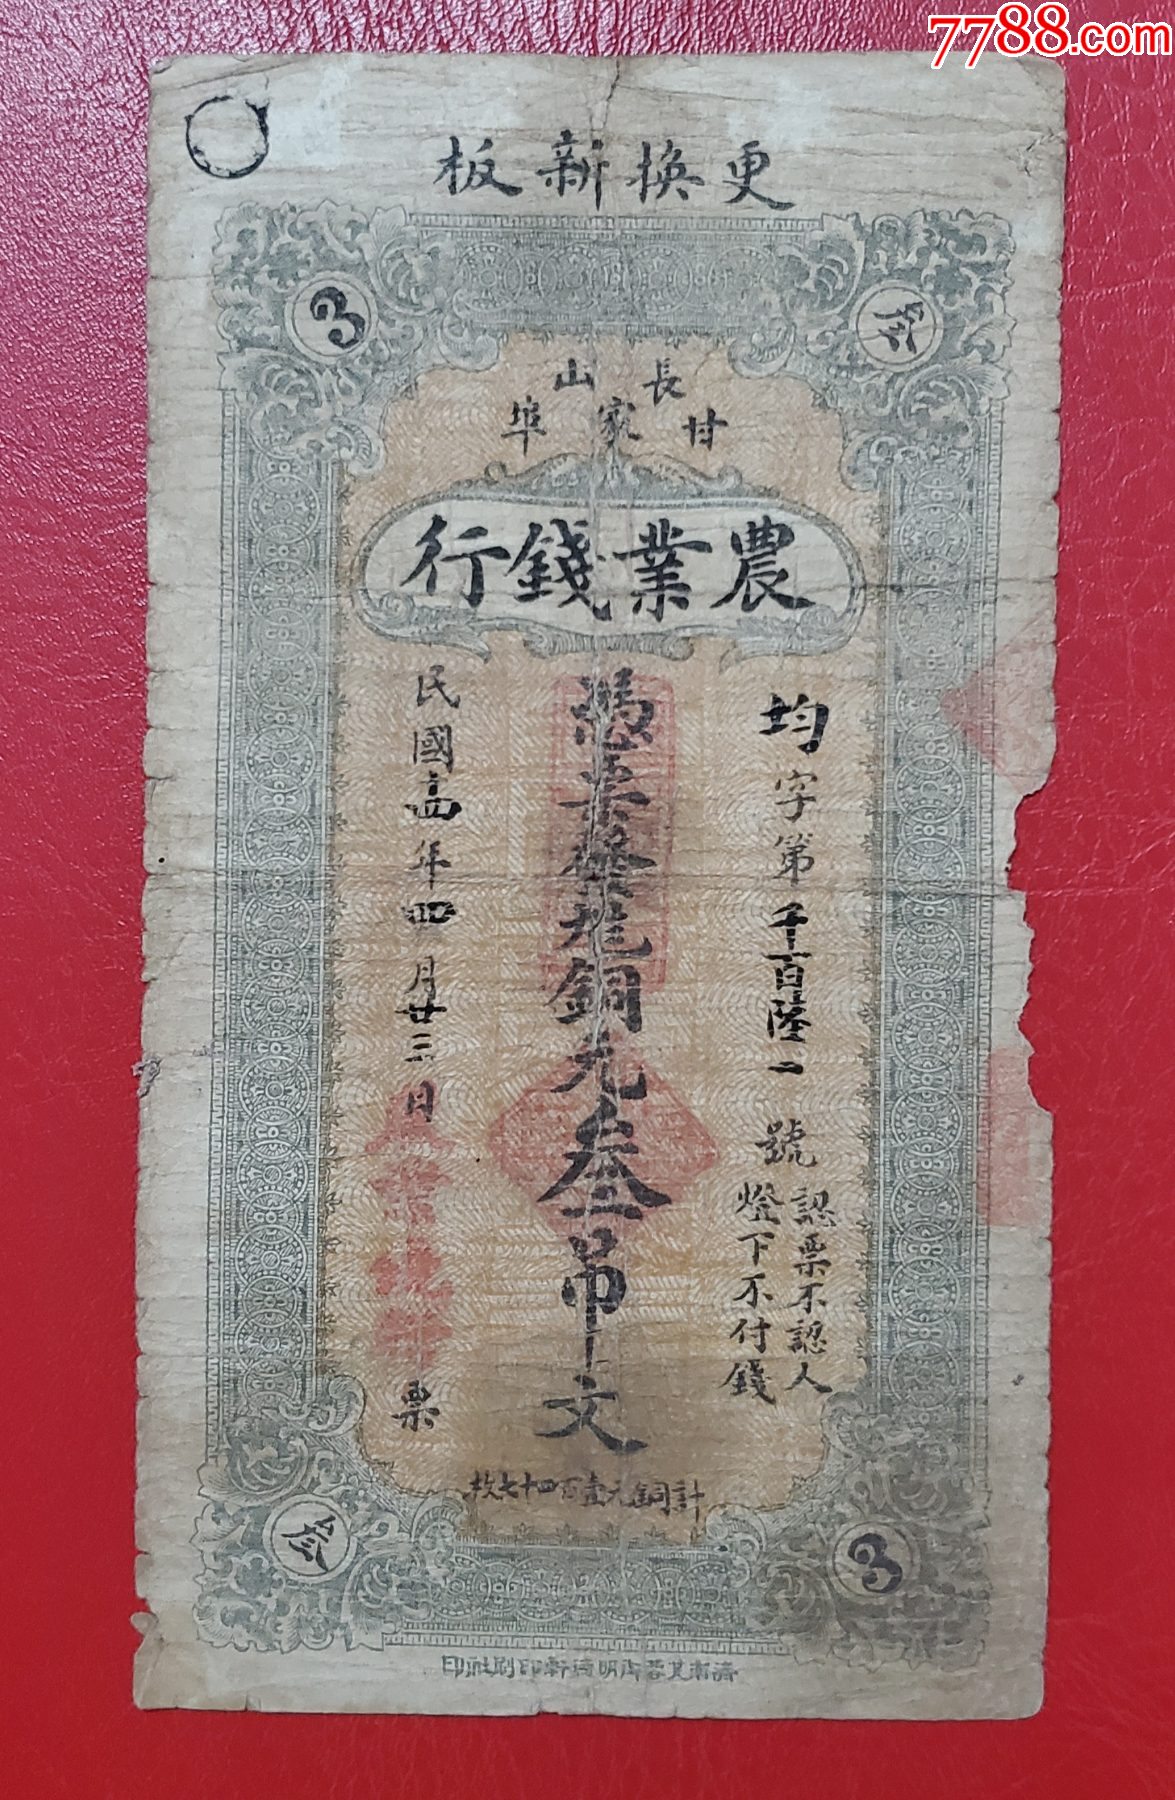 7788.com
更換新板
3
叁
長山
甘家埠
農業錢行
均字第千百陸一號
認票不認人
燈下不付錢
憑票發兌銅元叁吊文
民國十四年四月廿三日
票
計銅元壹百四十七枚
叁
3
印刷社印